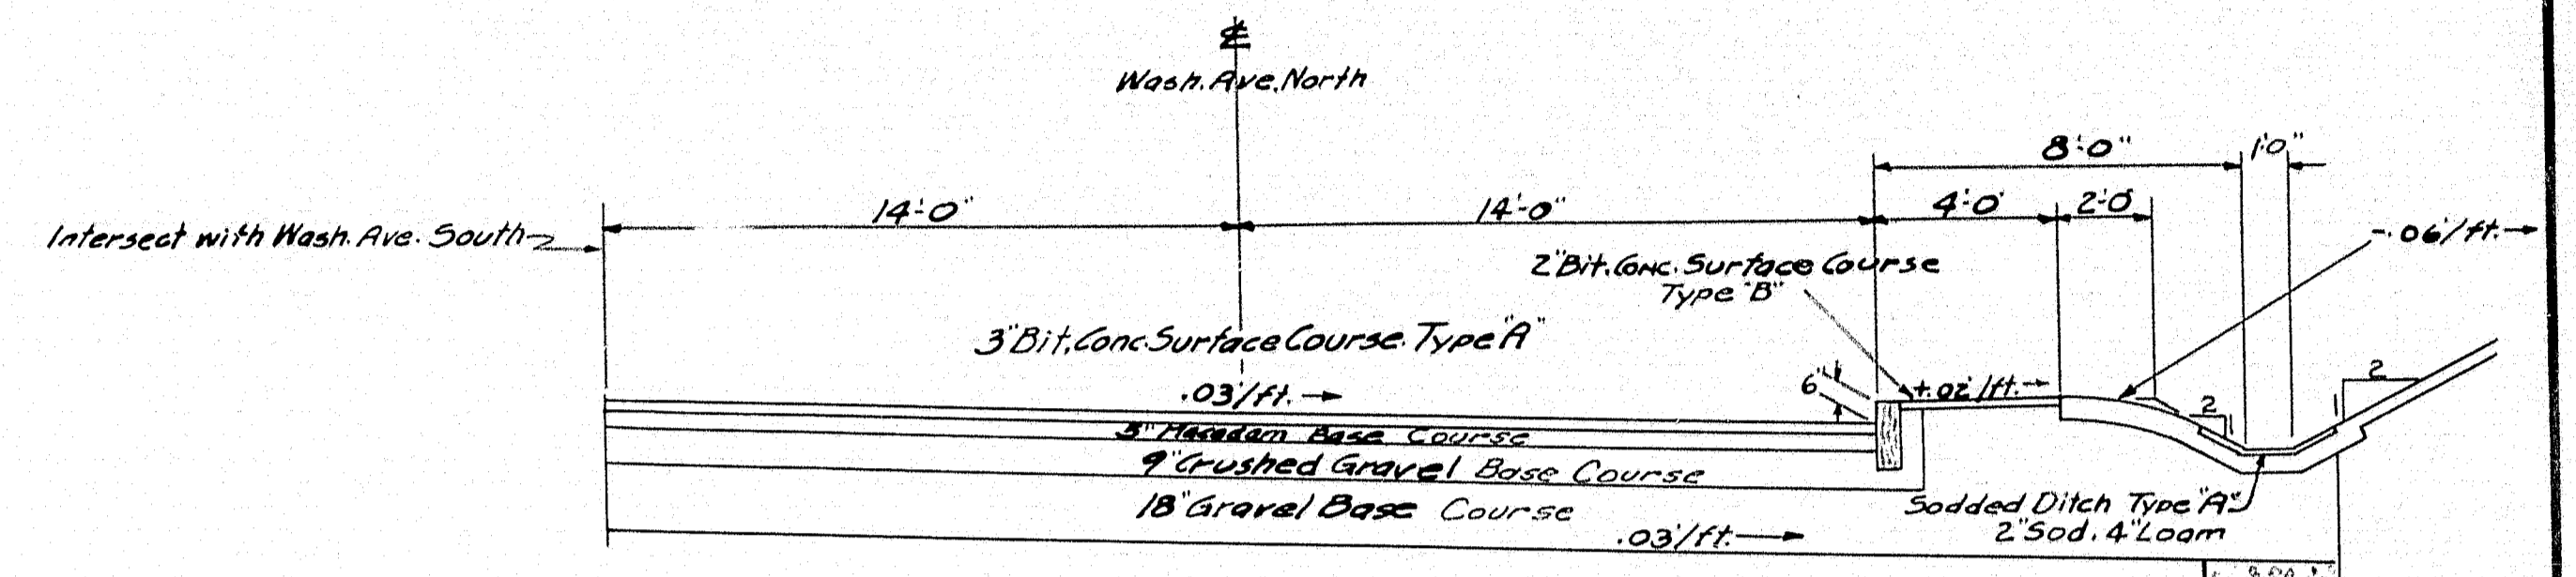 ℄
Wash. Ave. North
8'-0" 1'-0"
14'-0" 14'-0" 4'-0" 2'-0"
Intersect with Wash. Ave. South
-.06'/ft.
2" Bit. Conc. Surface Course
Type "B"
3" Bit. Conc. Surface Course. Type "A"
.03'/ft.
6"
+.02'/ft.
2
2
Macadam Base Course
9" Crushed Gravel Base Course
18" Gravel Base Course
Sodded Ditch Type "A"
2" Sod. 4" Loam
.03'/ft.